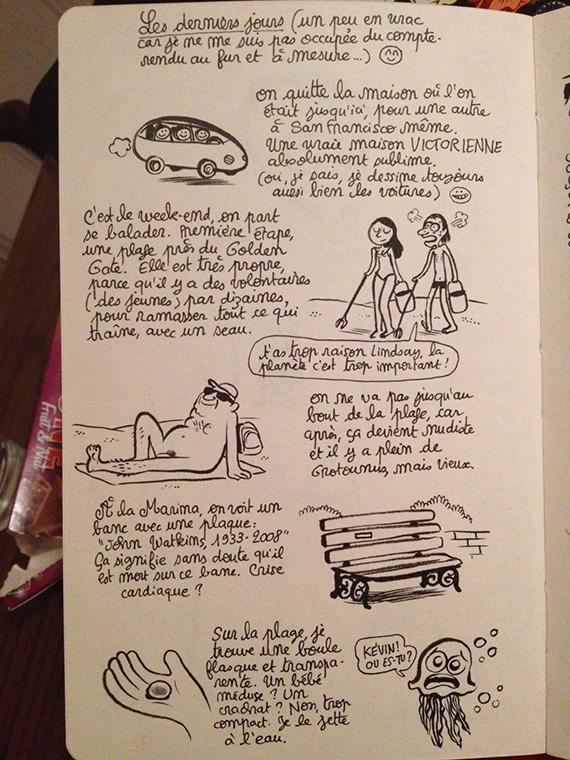 Les derniers jours (un peu en vrac
car je ne me suis pas occupée du compte-
rendu au fur et à mesure...)
on quitte la maison où l'on
était jusqu'ici, pour une autre
à San Francisco même.
Une vraie maison VICTORIENNE
absolument sublime.
(oui, je sais, je dessine toujours
aussi bien les voitures)
C'est le week-end, on part
se balader. Première étape,
une plage près du Golden
Gate. Elle est très propre,
parce qu'il y a des volontaires
(des jeunes) par dizaines,
pour ramasser tout ce qui
traîne, avec un seau.
t'as trop raison Lindsay, la
planète c'est trop important!
on ne va pas jusqu'au
bout de la plage, car
après, ça devient nudiste
et il y a plein de
Grotounus, mais vieux.
À la Marina, on voit un
banc avec une plaque:
"John Watkins, 1933-2008"
Ça signifie sans doute qu'il
est mort sur ce banc. Crise
cardiaque ?
Sur la plage, je
trouve une boule
flasque et transpa-
rente. Un bébé
méduse ? Un
crachat ? Non, trop
compact. Je le jette
à l'eau.
KÉVIN!
OÙ ES-TU?
Fruit & Nut